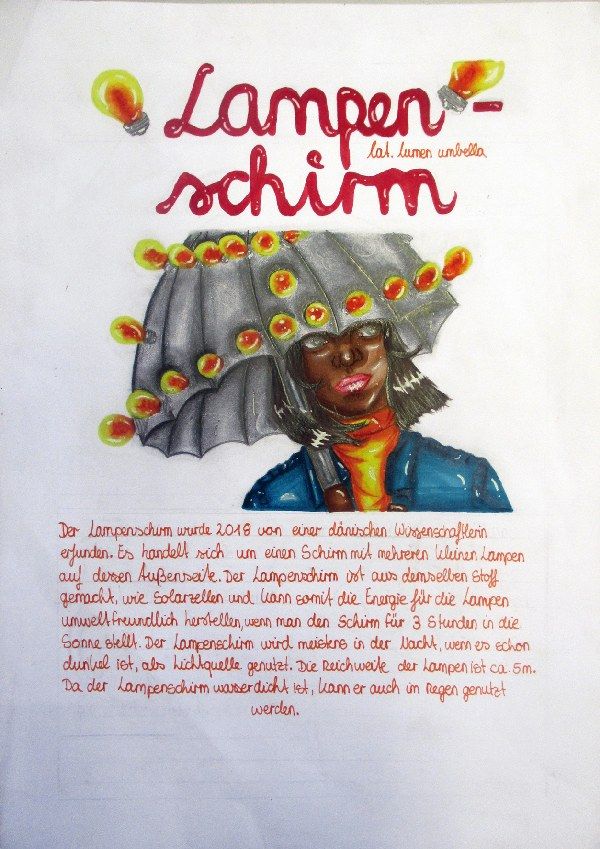 Lampen-
lat. lumen umbella
schirm
Der Lampenschirm wurde 2018 von einer dänischen Wissenschaftlerin
erfunden. Es handelt sich um einen Schirm mit mehreren kleinen Lampen
auf dessen Außenseite. Der Lampenschirm ist aus demselben Stoff
gemacht, wie Solarzellen und kann somit die Energie für die Lampen
umweltfreundlich herstellen, wenn man den Schirm für 3 Stunden in die
Sonne stellt. Der Lampenschirm wird meistens in der Nacht, wenn es schon
dunkel ist, als Lichtquelle genutzt. Die Reichweite der Lampen ist ca. 5m.
Da der Lampenschirm wasserdicht ist, kann er auch im Regen genutzt
werden.